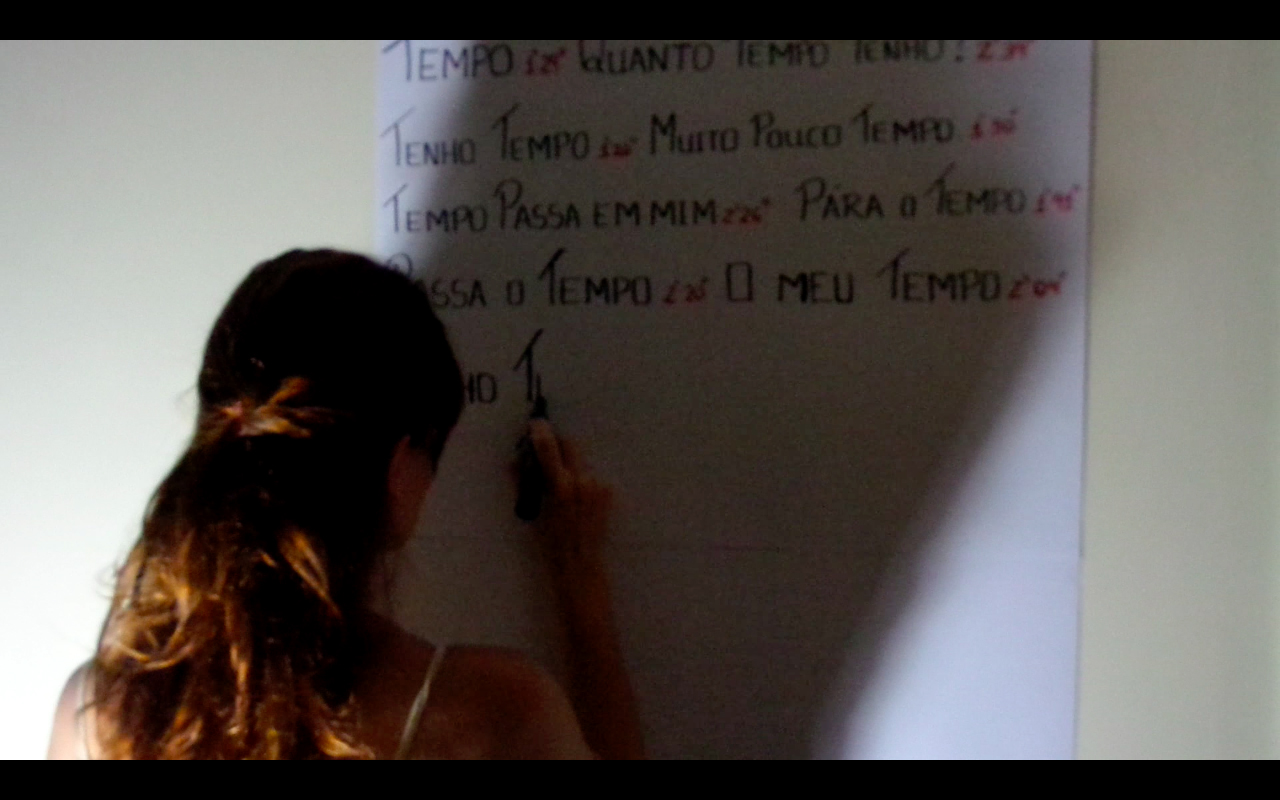 TEMPO QUANTO TEMPO TENHO?
TENHO TEMPO MUITO POUCO TEMPO
TEMPO PASSA EM MIM PÁRA O TEMPO
PASSA O TEMPO O MEU TEMPO 2'04"
HO T